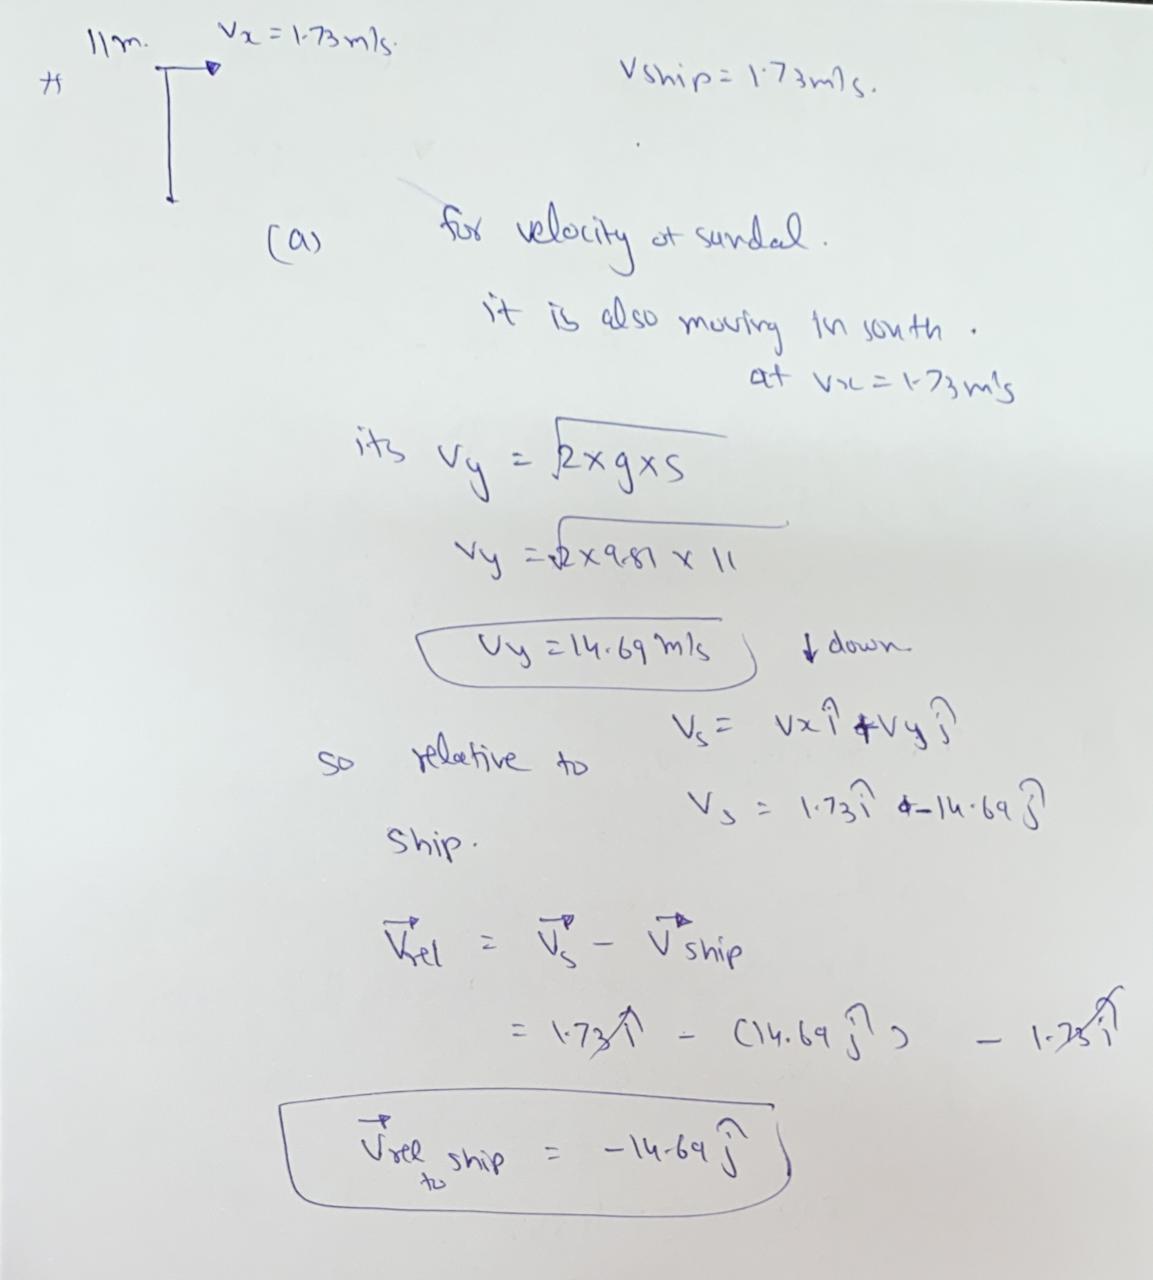 11m. Vx = 1.73 m/s.
Vship = 1.73 m/s.
(a) for velocity of sandal.
it is also moving in south.
at Vx = 1.73 m/s
its Vy = √2×g×s
Vy = √2×9.81×11
Vy = 14.69 m/s ↓ down
Vs = Vx î + Vy ĵ
so relative to
Vs = 1.73 î - 14.69 ĵ
ship.
V⃗rel = V⃗s - V⃗ship
= 1.73 î - (14.69 ĵ) - 1.73 î
V⃗rel to ship = -14.69 ĵ